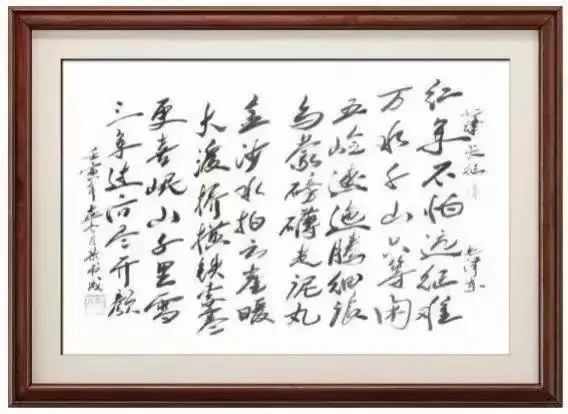 七律 长征 毛泽东
红军不怕远征难
万水千山只等闲
五岭逶迤腾细浪
乌蒙磅礴走泥丸
金沙水拍云崖暖
大渡桥横铁索寒
更喜岷山千里雪
三军过后尽开颜
壬寅年 七月